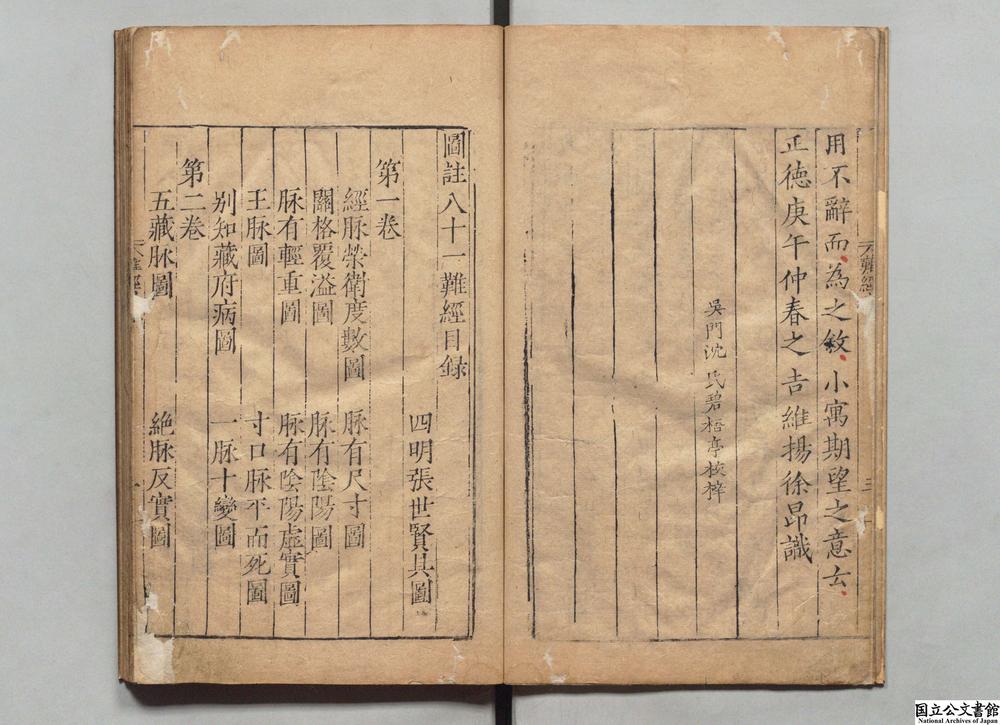 用不辭而為之敘小寓期望之意云
正德庚午仲春之吉維揚徐昂識
吳門沈氏碧梧亭校梓
難經
三
圖註八十一難經目錄
四明張世賢具圖
第一卷
經脉榮衛度數圖 脉有尺寸圖
關格覆溢圖 脉有陰陽圖
脉有輕重圖 脉有陰陽虛實圖
王脉圖 寸口脉平而死圖
別知藏府病圖 一脉十變圖
第二卷
五藏脉圖 絶脉反實圖
国立公文書館
National Archives of Japan